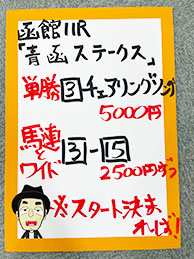 函館11R
「青函ステークス」
単勝3チェアリングソング
5000円
馬連とワイド 3-15
2500円ずつ
※スタート決まれば!